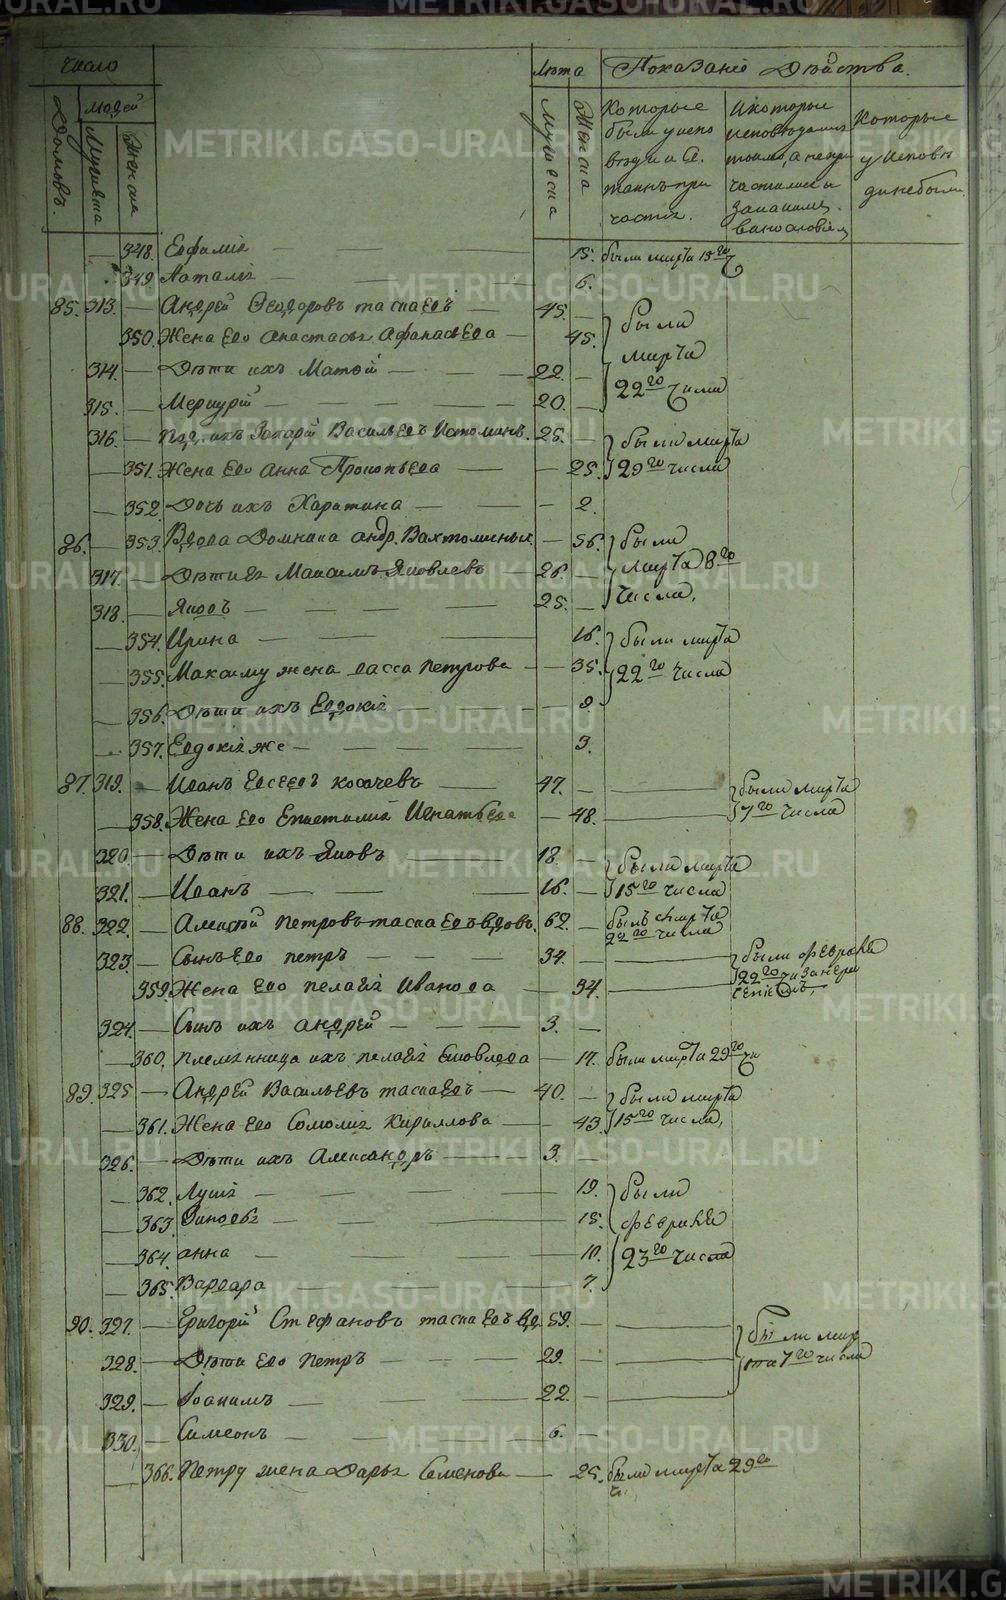 Число
Лѣта
Показаніе Действа.
Домовъ.
людей
Мужеска
Женска
Мужеска
Женска
Которые были у исповѣди и С. таинъ причаст.
Которые
у исповѣ
ди не были
348. Евфимія 15. были марта 15го ч
349. Наталія 6.
85. 313. Андрей Ѳеодоровъ Таскаевъ 45.
350. Жена его Анастасья Афанасьева 45. были
314. Дѣти ихъ Матѳій 22. марта
315. Меркурій 20. 22го числа
316. Захарій Васильевъ Истоминъ. 25. были марта
351. Жена его Анна Прокопьева 25. 29го числа
352. Дочь ихъ Харитина 2.
86. 353. Вдова Домника Андр. Вахтоминыхъ 56. были
317. Дѣти ея Максимъ Яковлевъ 26. марта 8го
318. Яковъ 25. числа.
354. Ирина 16. были марта
355. Максиму жена Васса Петрова 35. 22го числа
356. Дѣти ихъ Евдокія 9
357. Евдокія же 3.
87. 319. Иванъ Евсеевъ Косачевъ 47. были марта
358. Жена его Епистимія Игнатьева 48. 7го числа
320. Дѣти ихъ Яковъ 18. были марта
321. Иванъ 16. 15го числа
88. 322. Алексѣй Петровъ Таскаевъ вдовъ. 62. былъ марта
22го числа
323. Сынъ его Петръ 34. были февраля
359. Жена его Пелагія Иванова 34. 22го
324. Сынъ ихъ Андрей 3.
360. Племянница ихъ Пелагія Яковлева 17. были марта 29го ч
89. 325 Андрей Васильевъ Таскаевъ 40. были марта
361. Жена его Соломія Кириллова 43. 15го числа,
326. Дѣти ихъ Александръ 3.
362. Лукія 19. были
363. Зиновья 15. февраля
364. Анна 10. 23го числа
365. Варвара 7.
90. 327. Григорій Стефановъ Таскаевъ вд. 59. были мар
328. Дѣти его Петръ 29. та 7го числа
329. Іоакимъ 22.
330. Симеонъ 6.
366. Петру жена Дарья Семенова 25. были марта 29го
ч.
METRIKI.GASO-URAL.RU